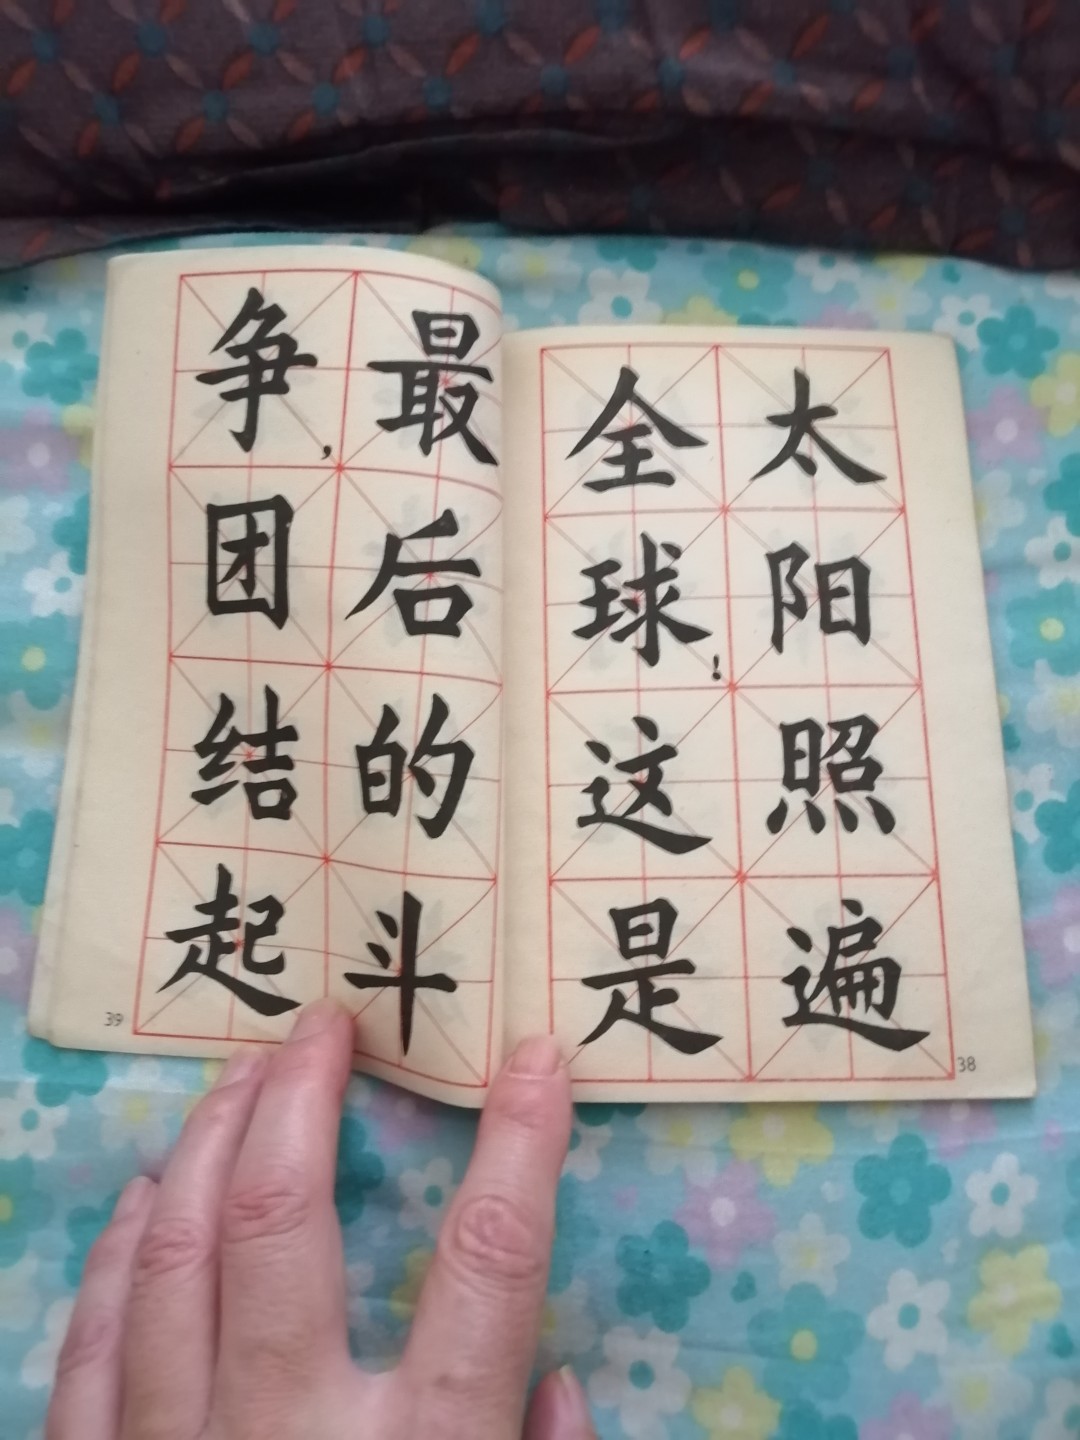 太阳照遍
全球!这是
38
最后的斗
争,团结起
39